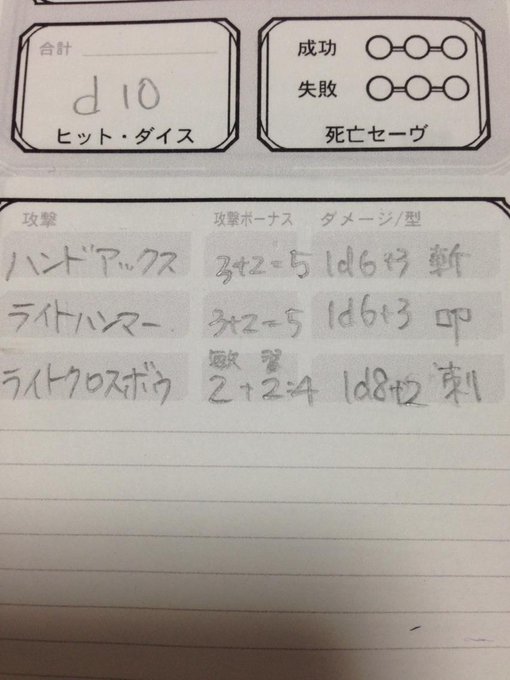 合計
d10
ヒット・ダイス
成功
失敗
死亡セーヴ
攻撃 攻撃ボーナス ダメージ/型
ハンドアックス 3+2=5 1d6+3 斬
ライトハンマー 3+2=5 1d6+3 叩
敏 習
ライトクロスボウ 2+2=4 1d8+2 刺